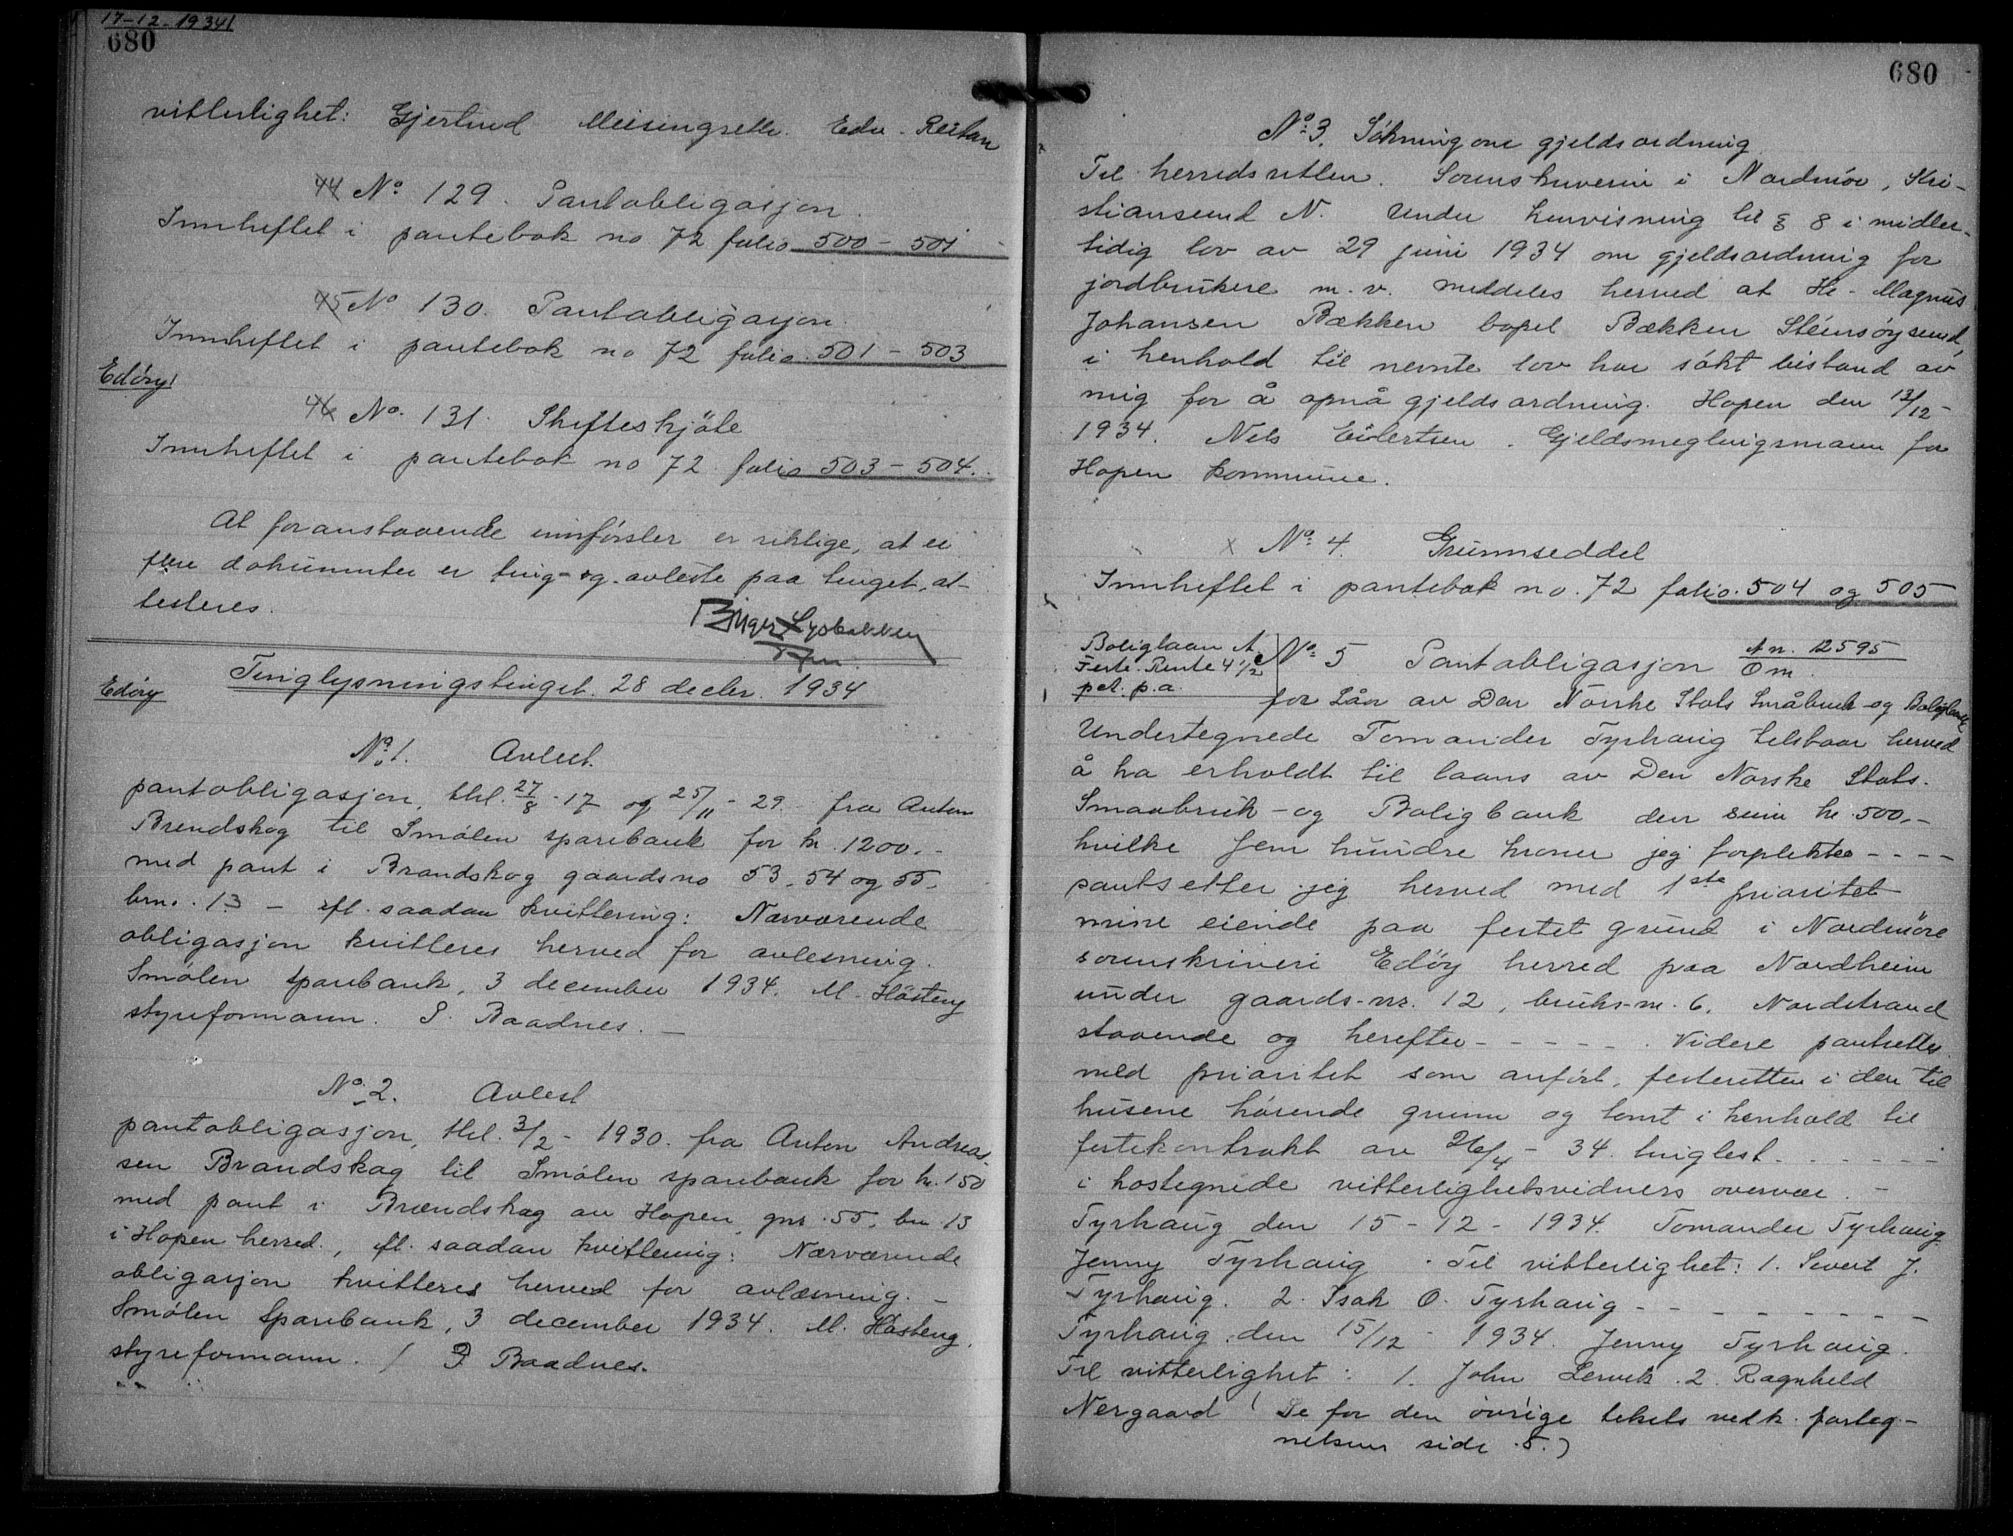 17-12-1934
680
vitterlighet: Gjertrud Meisingseth. Edv. Reitan
44 No 129. Pantobligasjon.
Innheftet i pantebok no 72 folio 500 - 501
45 No 130. Pantobligasjon.
Innheftet i pantebok no 72 folio 501 - 503
Edöy
46 No. 131. Skifteskjöte
Innheftet i pantebok no 72 folio 503 - 504.
At foranstaaende innförsler er riktige, at ei
flere dokumenter er ting- og avleste paa tinget, at-
testeres.
Birger Lysbakken
Tinglysningstinget 28 decbr. 1934
Edöy
No 1. Avlest
pantobligasjon, thl. 27/8-17 og 25/11-29 fra Anton
Brendskog til Smölen sparebank for kr. 1200.-
med pant i Brandskog gaardsno 53, 54 og 55,
brno. 13 - efl. saadan kvittering: Nærværende
obligasjon kvitteres herved for avlesning.
Smölen Sparebank, 3 december 1934. M. Hösteng
styreformann. P. Baadnes. -
No 2. Avlest
pantobligasjon, thl. 3/2 - 1930. fra Anton Andreas-
sen Brandskog til Smölen sparebank for kr. 150
med pant i Brændskag av Hopen gnr. 55, bn 13
i Hopen herred, efl. saadan kvittering: Nærværende
obligasjon kvitteres herved for avlæsning. -
Smölen Sparebank, 3 december 1934. M. Hösteng.
styreformann. / P Baadnes.
680
No 3. Sökning om gjeldsordning
Til herredsretten. Sorenskriveren i Nordmör, Kri-
stiansund N. Under henvisning til § 8 i midler-
tidig lov av 29 juni 1934 om gjeldsordning for
jordbrukere m.v. meddeles herved at Hr. Magnus
Johansen Bækken bopel Bækken Steinsöysund,
i henhold til nevnte lov har sökt bistand av
mig for å opnå gjeldsordning. Hopen den 12/12-
1934. Nels Eilertsen. Gjeldsmeglingsmann for
Hopen kommune.
x No 4. Grunnseddel
Innheftet i pantebok no. 72 folio 504 og 505
Boliglaan A
Feste. Rente 4 1/2
pct. p.a.
No 5 Pantobligasjon A n. 12595
Om.
for Lån av Den Norske Stats Småbruk- og Boligbank
Undertegnede Tomander Tyrhaug tilstaar herved
å ha erholdt til laans av Den Norske Stats-
Smaabruk- og Boligbank den sum kr. 500,-
hvilke fem hundre kroner jeg forplikter - - - -
pantsetter jeg herved med 1ste prioritet
mine eiende paa festet grund i Nordmöre
sorenskriveri Edöy herred paa Nordheim
under gaards-nr. 12, bruks-nr. 6, Nordstrand
staaende og herefter - - - - - . Videre pantsettes
med prioritet som anfört, festeretten i den til
husene hörende grunn og tomt i henhold til
festekontrakt av 26/4 - 34. tinglest - - - - - -
i hostegnede vitterlighetsvidners overvær. -
Tyrhaug den 15 - 12 - 1934. Tomander Tyrhaug
Jenny Tyrhaug. Til vitterlighet: 1. Severt J.
Tyrhaug. 2. Isak O. Tyrhaug - - - - - - - -
Tyrhaug, den 15/12 - 1934. Jenny Tyrhaug.
Til vitterlighet: 1. John Lervik. 2. Ragnhild
Nergaard (Se for den övrige teksts vedk. forteg-
nelsen side 5.)